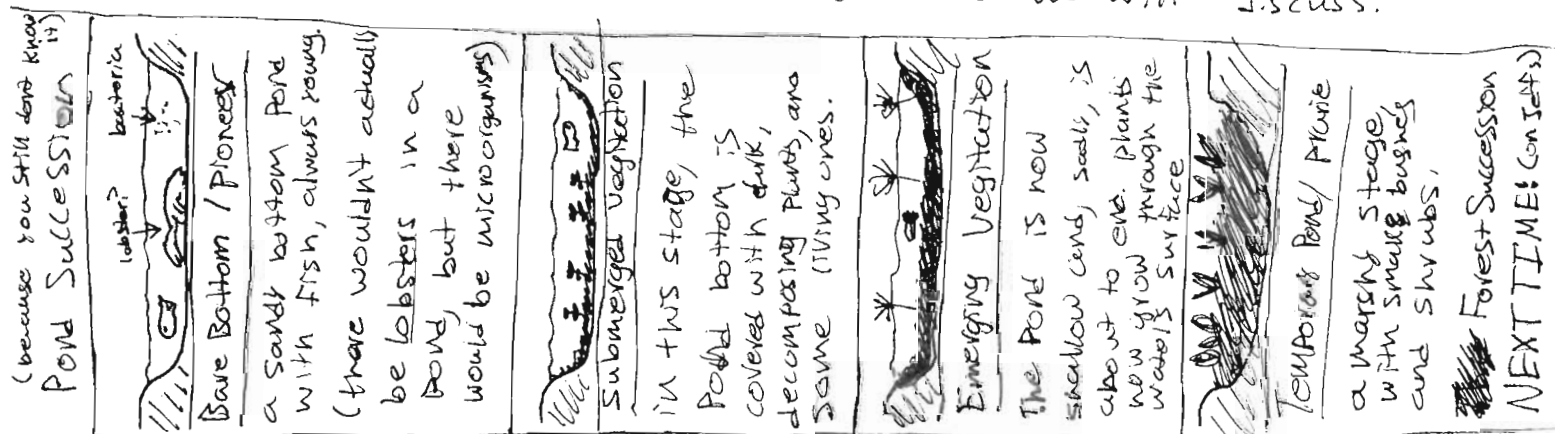 DISCUSS.
(because you still dont know it)
Pond Succession
lobster?
bacteria
Bare Bottom / Pioneer
a sandy bottom Pond
with fish, always young.
(there wouldn't actually
be lobsters in a
pond, but there
would be microorganisms)
Submerged vegitation
in this stage, the
Pond bottom is
covered with
decomposing plants, and
some living ones.
Emerging Vegitation
The Pond is now
shallow and, sadly, is
about to end. plants
now grow through the
waters surface
Temporary Pond/ prairie
a marshy stage,
with small bushes
and shrubs.
Forest Succession
NEXT TIME!